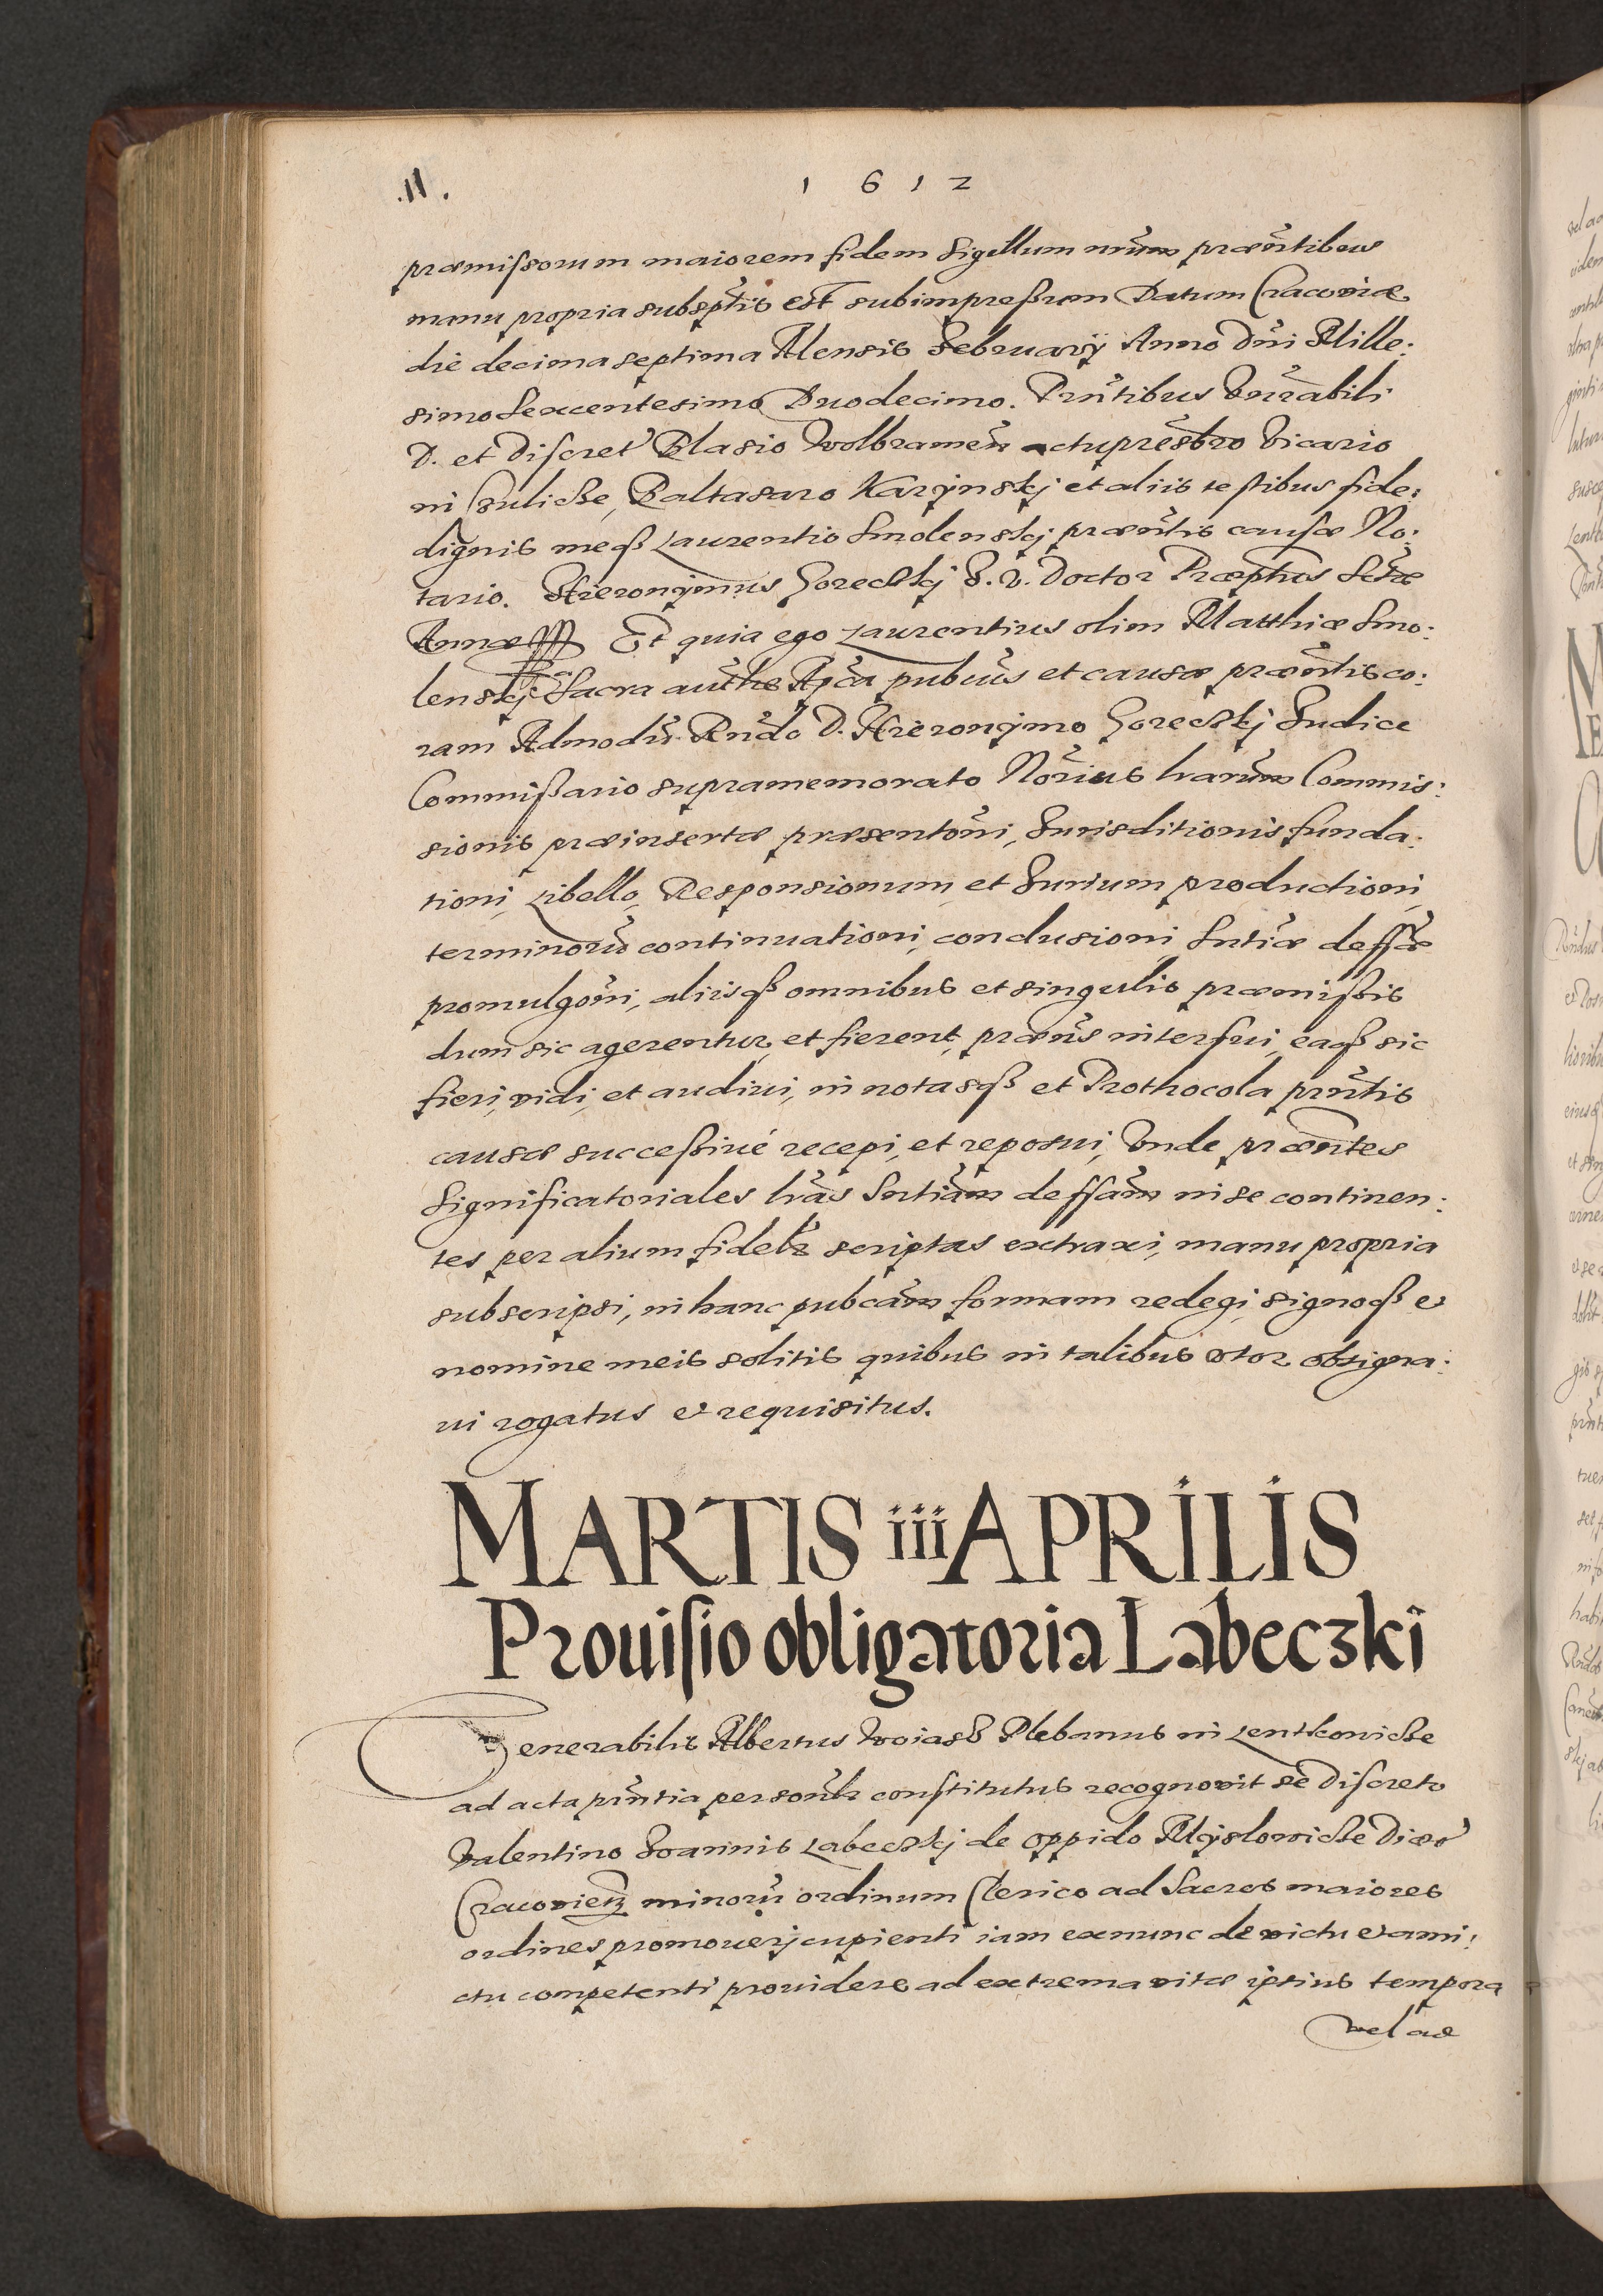 .11.
1 6 1 2
præmissorum maiorem fidem Sigillum nr̃um præñtibus
manu propria subsptis est subimpressum Datum Cracoviæ
die decima septima Mensis February Anno Dñi Mille:
simo Sexcentesimo Duodecimo. Prñtibus Vnrabili
D. et Discret' Blasio Wolbrameñ actupresbro Vicario
in Sulicze, Baltasaro Karzynskj et aliis testibus fide:
dignis meq; Laurentio Smolenskj præñtis causæ No:
tario. Hieronymus Goreczkj I. V. Doctor Præptus Sctæ
Annæ Et quia ego Laurentius olim Matthiæ Smo:
lenskj Sacra authe Aplca pubcus et causæ præñtis co:
ram Admodũ Rñdo D. Hieronymo Goreczkj Iudice
Commissario supramemorato Norius hraruм Commis:
sionis præinsertæ præsentoni, Iurisditionis funda:
tioni, Libello, Responsionum et Iurium productioni,
terminorũ continuationi, conclusioni Sntiæ deffæ
promulgõni, aliisq; omnibus et singulis præmissis
dum sic agerentur et fierent, præñs interfui, eaq; sic
fieri, vidi, et audiui, in notasq; et Prothocola prñtis
causæ successiué recepi, et reposui, Vnde præñtes
Significatoriales lras Sntiam deffam in se continen:
tes per alium fidelr scriptas extraxi, manu propria
subscripsi, in hanc pubcam formam redegi, signoq; et
nomine meis solitis quibus in talibus vtor obsigna:
ui rogatus et requisitus.
MARTIS iii APRILIS
Prouisio obligatoria Labeczki
Venerabilis Albertus Woias Plebanus in Lentkowicze
ad acta prñtia personlr constitutus recognovit se Discreto
Valentino Ioannis Labeczkj de oppido Myslowicze Diæc'
Cracovieñ minorũ ordinum Clerico ad Sacros maiores
ordines promouerj cupienti iam exnunc de victu et ami:
ctu competenti prouidere ad extrema vitæ ipsius tempora
vel ad